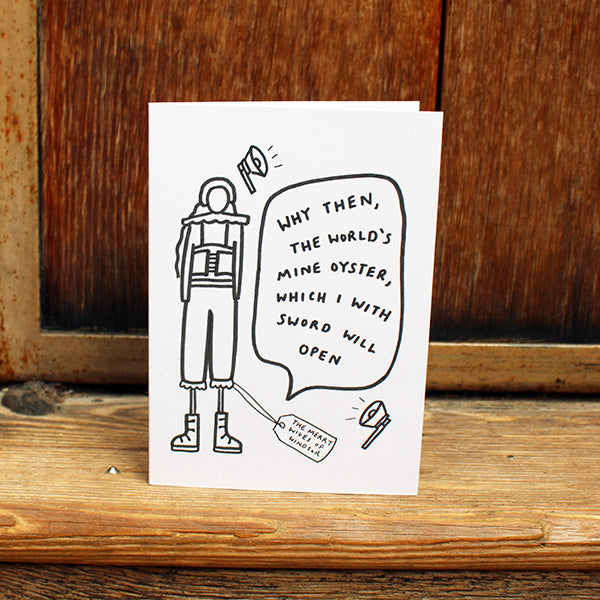 WHY THEN,
THE WORLD'S
MINE OYSTER,
WHICH I WITH
SWORD WILL
OPEN
THE MERRY
WIVES OF
WINDSOR